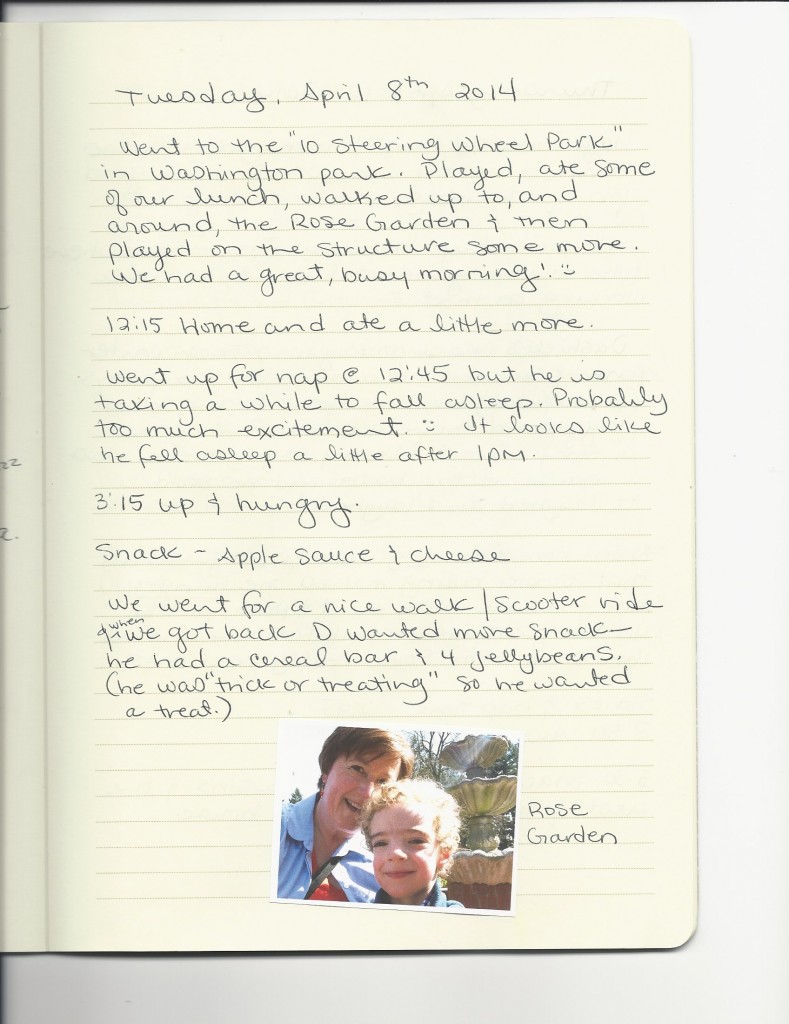 Tuesday, April 8th 2014
Went to the "10 Steering Wheel Park"
in Washington park. Played, ate some
of our lunch, walked up to, and
around, the Rose Garden & then
played on the structure some more.
We had a great, busy morning! :)
12:15 Home and ate a little more.
Went up for nap @ 12:45 but he is
taking a while to fall asleep. Probably
too much excitement. :) It looks like
he fell asleep a little after 1PM.
3:15 up & hungry.
Snack - Apple Sauce & cheese
We went for a nice walk/scooter ride
& when we got back D wanted more snack-
he had a cereal bar & 4 jellybeans.
(he was "trick or treating" so he wanted
a treat.)
Rose
Garden